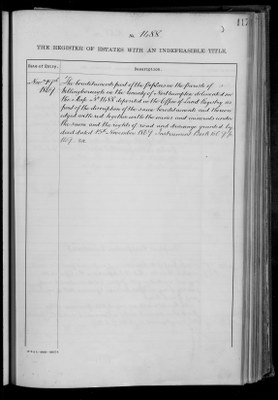 117
No. 1488
THE REGISTER OF ESTATES WITH AN INDEFEASIBLE TITLE.
Date of Entry. Description.
Novr 27th The hereditaments part of the in the parish of
1867 Wellingborough in the County of Northampton delineated on
the Map No. 1488 deposited in the Office of Land Registry as
part of the description of the same hereditaments and thereon
edged with red together with the mines and minerals under
the same and the rights of road and drainage granted by
deed dated 15th November 1867 Instrument Book
1867